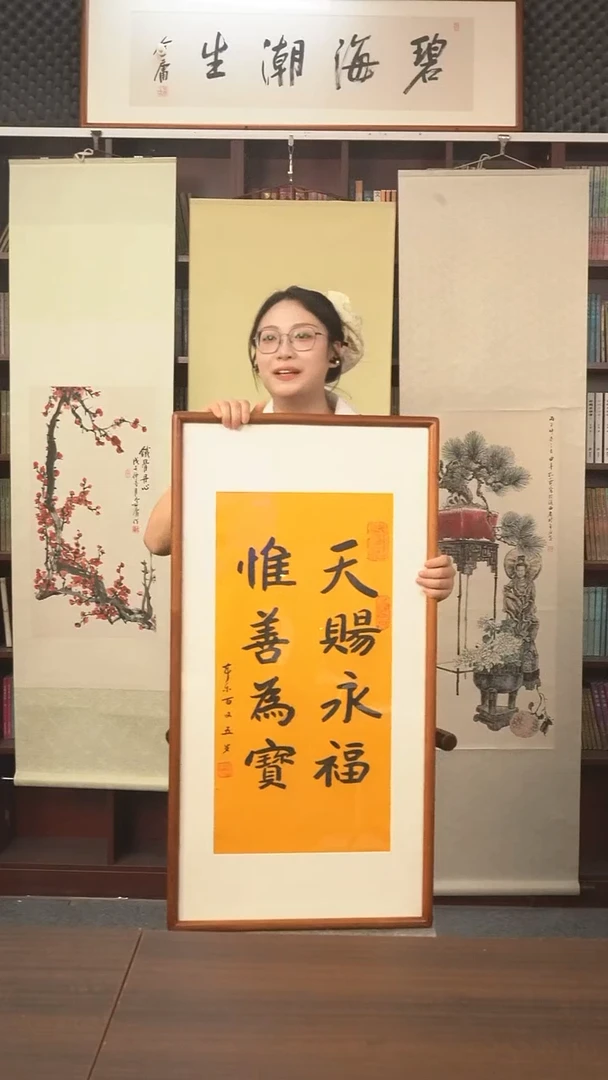 碧海潮生
金庸
天賜永福
惟善為寶
鐵骨丹心